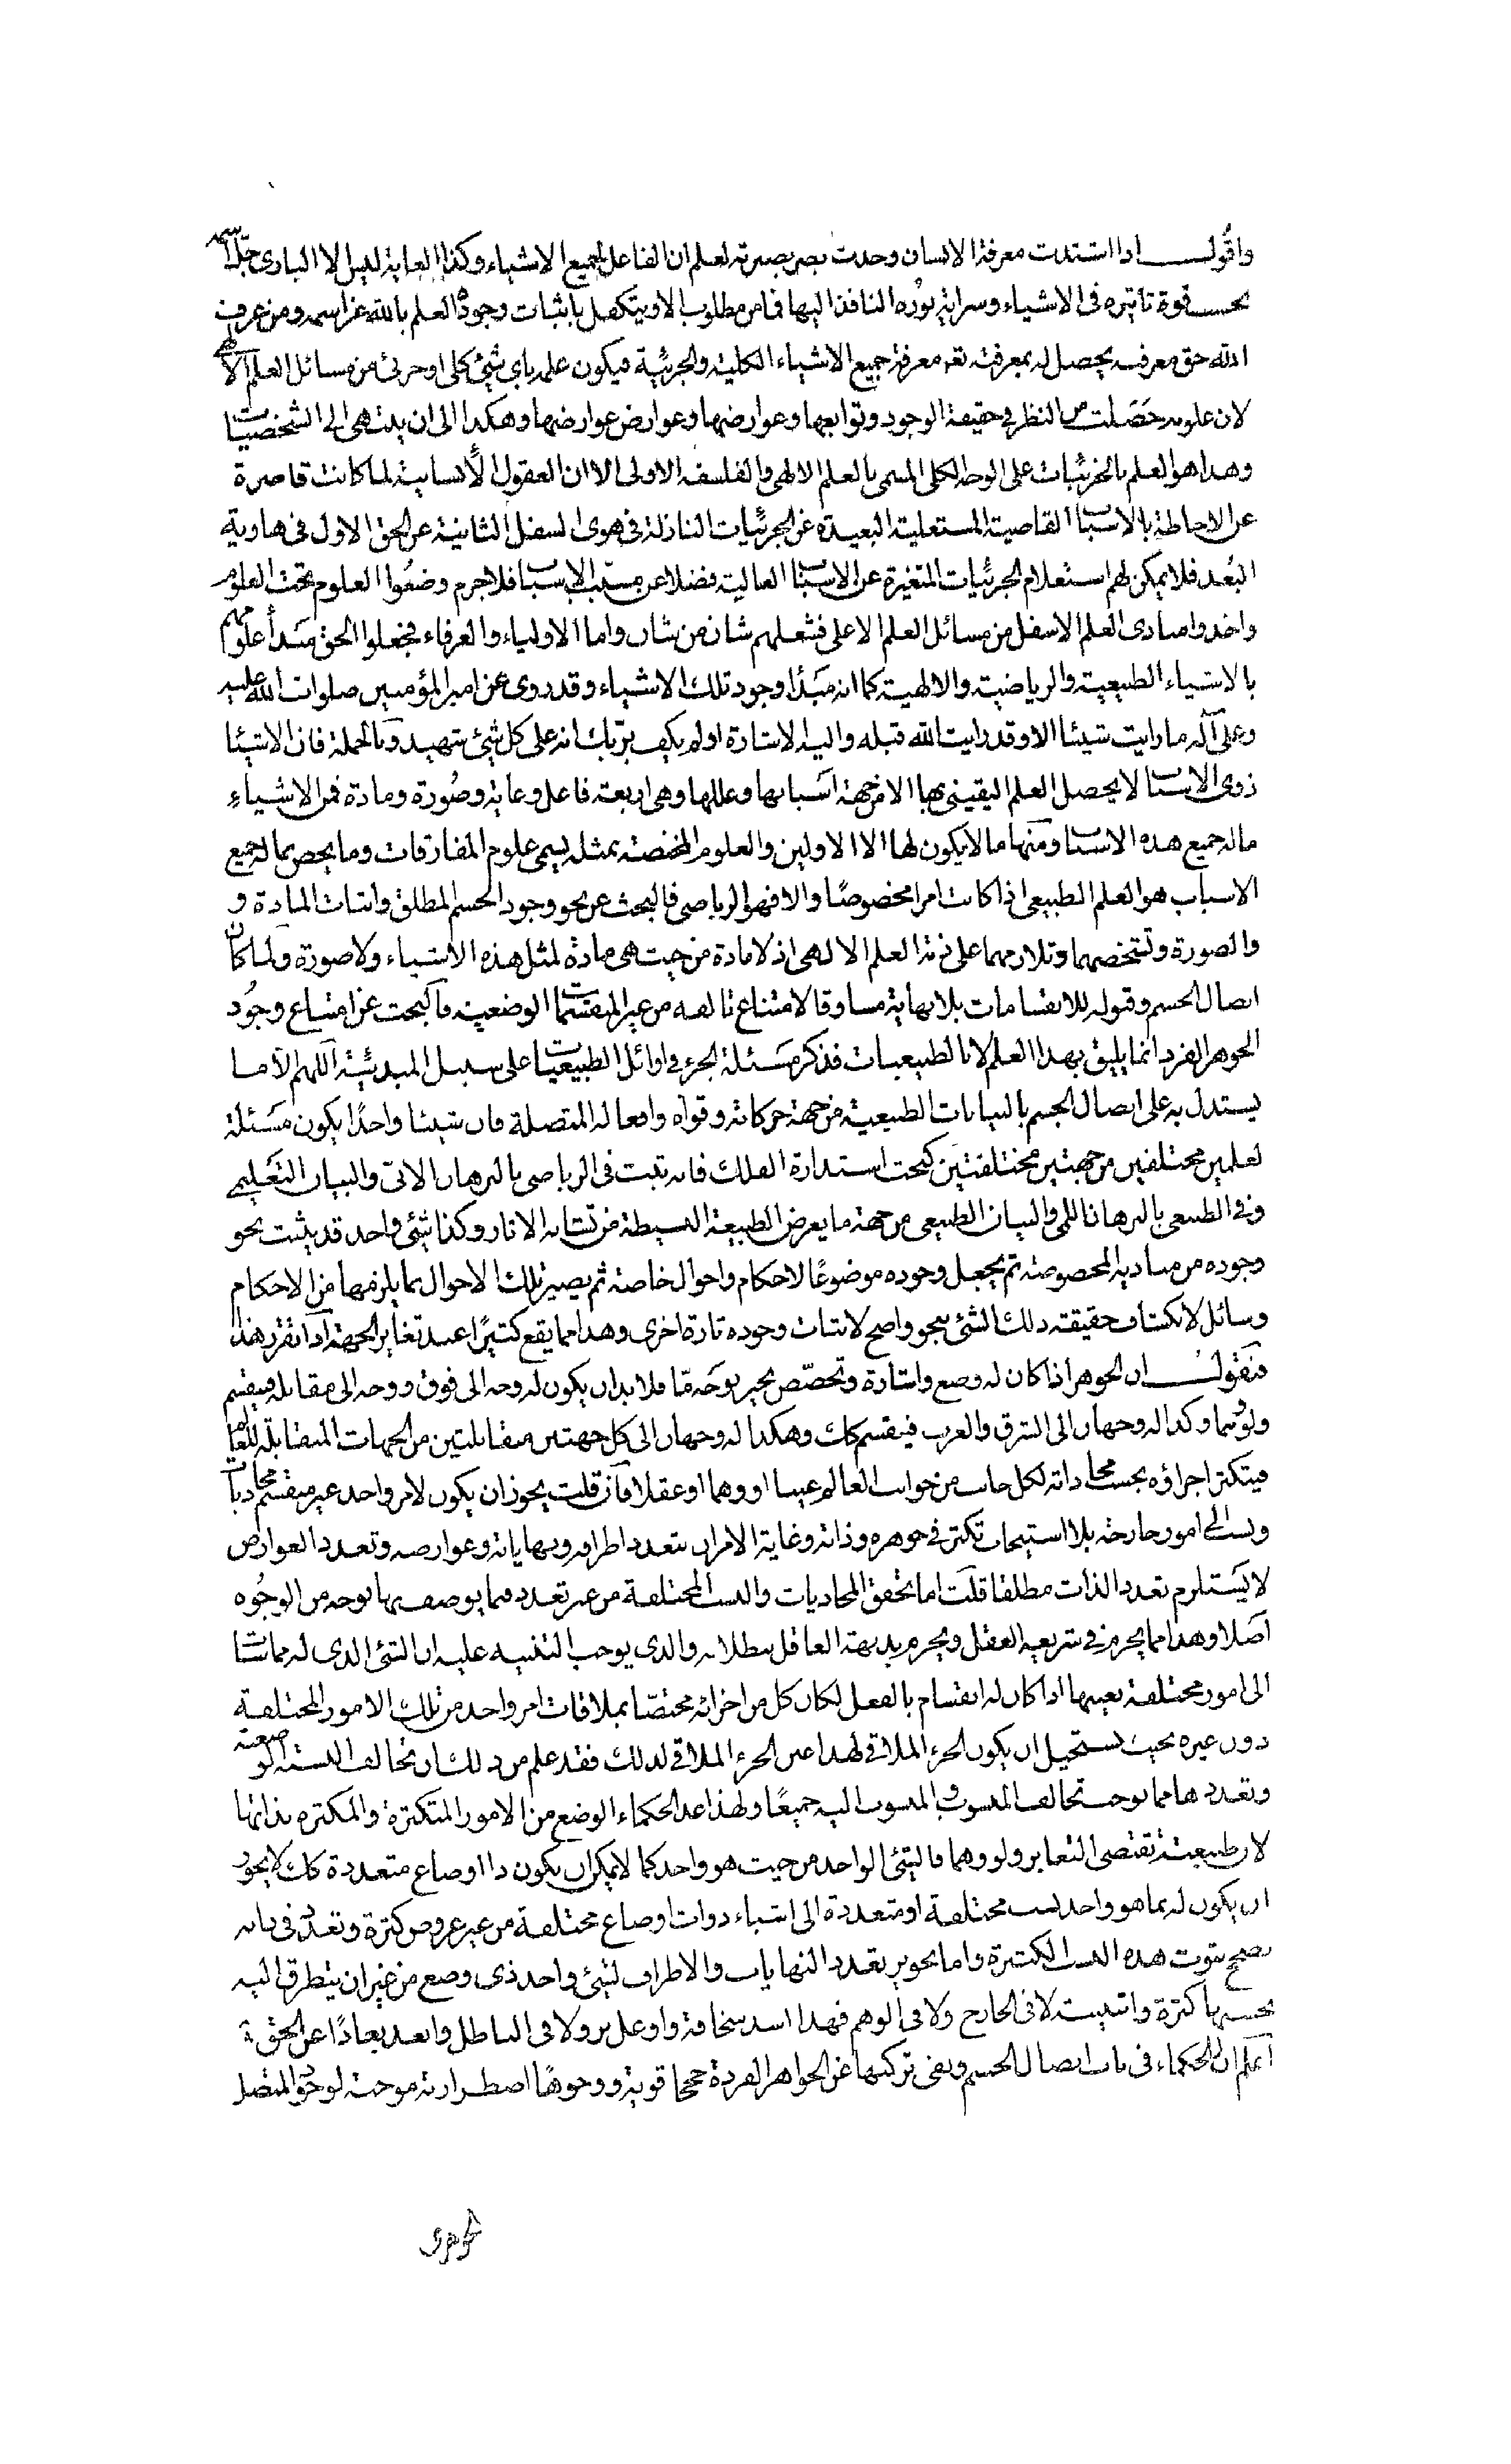 واقول اذا اشتدت معرفة الانسان وحدت بصر بصيرته لعلم ان الفاعل لجميع الاشياء وكذا الغاية ليس الا البارى جل اسمه
بحسب قوة تاثيره فى الاشياء وسراية نوره النافذ اليها فما من مطلوب الا ويتكفل باثبات وجوده العلم بالله عز اسمه ومن عرف
الله حق معرفته يحصل له بمعرفته تعه معرفة جميع الاشياء الكلية والجزئية فيكون علمه باى شئ كلى او جزئى من مسائل العلم الالهى
لان علومه حصلت من النظر فى حقيقة الوجود وتوابعها وعوارضها وعوارض عوارضها وهكذا الى ان ينتهى الى الشخصيات
وهذا هو العلم بالجزئيات على الوجه الكلى المسمى بالعلم الالهى والفلسفة الاولى الا ان العقول الانسانية لما كانت قاصرة
عن الاحاطة بالاسباب القاصية المستعلية البعيدة عن الجزئيات النازلة فى هوى السفل الثانية عن الحق الاول فى هاوية
البعد فلا يمكن لهم استعلام الجزئيات المتغيرة عن الاسباب العالية فضلا عن مسبب الاسباب فلا جرم وضعوا العلوم تحت العلوم
واخذوا مبادى العلم الاسفل من مسائل العلم الاعلى فشغلهم شان من شان واما الاولياء والعرفاء فجعلوا الحق مبدأ علومهم
بالاشياء الطبيعية والرياضية والالهية كما انه مبدأ وجود تلك الاشياء وقد روى عن امير المؤمنين صلوات الله عليه
وعلى آله ما رايت شيئا الا وقد رايت الله قبله واليه الاشارة اولم يكف بربك انه على كل شئ شهيد وبالجملة فان الاشياء
ذوى الاسباب لا يحصل العلم اليقينى بها الا من جهة اسبابها وعللها وهى اربعة فاعل وغاية وصورة ومادة فمن الاشياء
ما له جميع هذه الاسباب ومنها ما لا يكون لها الا الاولين والعلوم المختصة بمثله يسمى علوم المفارقات وما يختص بما له جميع
الاسباب هو العلم الطبيعى اذا كانت امرا مخصوصا والا فهو الرياضى فالبحث عن نحو وجود الجسم المطلق واثبات المادة و
والصورة وتشخصهما وتلازمهما على ذمة العلم الالهى اذ لا مادة من حيث هى مادة لمثل هذه الاشياء ولا صورة ولما كان
اتصال الجسم وقبوله للانقسامات بلا نهاية مساوقا لامتناع تالفه من غير المنقسمات الوضعية فالبحث عن امتناع وجود
الجوهر الفرد انما يليق بهذا العلم لا بالطبيعيات فذكر مسئلة الجزء فى اوائل الطبيعيات على سبيل المبدئية اللهم الا ما
يستدل به على اتصال الجسم بالبيانات الطبيعية من جهة حركاته وقواه وافعاله المتصلة فان شيئا واحدا يكون مسئلة
لعلمين مختلفين من جهتين مختلفتين كبحث استدارة الفلك فانه تثبت فى الرياضى بالبرهان الانى والبيان التعليمى
وفى الطبيعى بالبرهان اللمى والبيان الطبيعى من جهة ما يعرض الطبيعة البسيطة من تشابه الاثار وكذا شئ واحد قد يثبت نحو
وجوده من مباديه المخصوصة ثم يجعل وجوده موضوعا لاحكام واحوال خاصة ثم يصير تلك الاحوال بما يلزمها من الاحكام
وسائل لانكشاف حقيقة ذلك الشئ بنحو واضح لاثبات وجوده تارة اخرى وهذا مما يقع كثيرا عند تغاير الجهة اذا تقرر هذا
فنقول ان الجوهر اذا كان له وضع واشارة وتخصص بحيز بوجه ما فلا بد ان يكون له وجه الى فوق ووجه الى مقابله فينقسم
ولو وهما وكذا له وجهان الى الشرق والغرب فينقسم كك وهكذا له وجهان الى كل جهتين متقابلتين من الجهات المتقابلة للعالم
فيتكثر اجزاؤه بحسب محاذاته لكل جانب من جوانب العالم عينا او وهما او عقلا فان قلت يجوز ان يكون لامر واحد غير منقسم محاذيات
ونسب الى امور خارجة بلا استيجاب تكثر فى جوهره وذاته وغاية الامر ان يتعدد اطرافه ونهاياته وعوارضه وتعدد العوارض
لا يستلزم تعدد الذات مطلقا قلت اما تحقق المحاذيات والنسب المختلفة من غير تعدد فيما يوصف بها بوجه من الوجوه
اصلا وهذا مما يحرم فى شريعة العقل ويجزم بديهة العاقل ببطلانه والذى يوجب التنبيه عليه ان الشئ الذى له مماسات
الى امور مختلفة بعينها اذا كان له انقسام بالفعل لكان كل من اجزائه مختصا بملاقات امر واحد من تلك الامور المختلفة
دون غيره بحيث يستحيل ان يكون الجزء الملاقى لهذا عين الجزء الملاقى لذلك فقد علم من ذلك ان تخالف النسبة الوضعية
وتعددها مما يوجب تخالف المنسوب والمنسوب اليه جميعا ولهذا عد الحكماء الوضع من الامور المتكثرة والمكثرة بذاتها
لان طبيعته تقتضى التغاير ولو وهما فالشئ الواحد من حيث هو واحد كما لا يمكن ان يكون ذا اوضاع متعددة كك لا يجوز
ان يكون له بما هو واحد نسب مختلفة او متعددة الى اشياء ذوات اوضاع مختلفة من غير عروض كثرة وتعدد فى ذاته
يصحح ثبوت هذه النسب الكثيرة واما تجويز تعدد النهايات والاطراف لشئ واحد ذى وضع من غير ان يتطرق اليه
بحسبها كثرة واثنينية لا فى الخارج ولا فى الوهم فهذا اشد سخافة واوغل نزولا فى الباطل وابعد بعادا عن الحق
اعلم ان للحكماء فى باب اتصال الجسم ونفى تركبها عن الجواهر الفردة حججا قوية ووجوها اضطرارية موجبة لوجود المتصل
الجوهرى